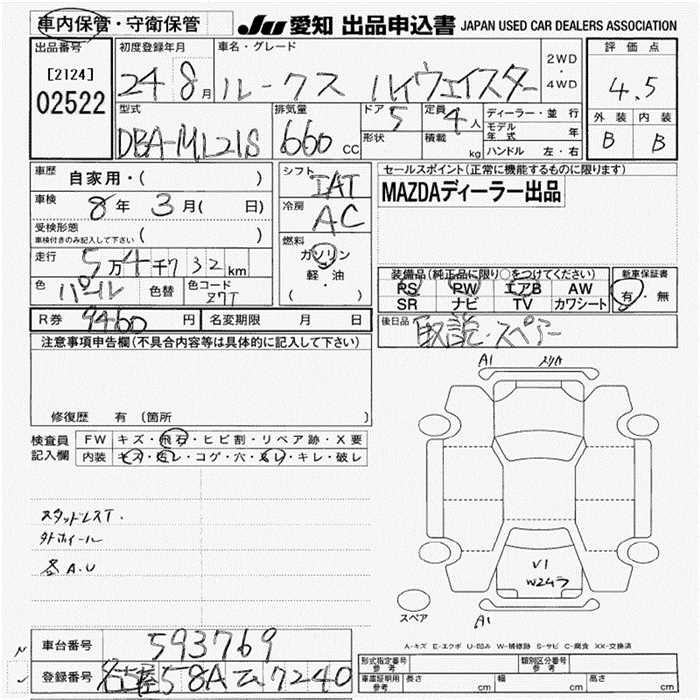 車内保管・守衛保管
JU 愛知 出品申込書 JAPAN USED CAR DEALERS ASSOCIATION
出品番号
[2124]
02522
初度登録年月
24 8月
車名・グレード
ルークス ハイウェイスター
2WD
・
4WD
評価点
4.5
外装 内装
B B
型式
DBA-ML21S
排気量
660 CC
ドア 5
形状
定員 4人
積載 kg
ディーラー・並行
モデル年式 年
ハンドル 左・右
車歴
自家用・( )
車検
8年 3月( 日)
受検形態
車検付きのみ記入して下さい ( )
走行
5万4千732km
色 パール 色替 色コード Z7T
シフト
IAT
冷房
AC
燃料
ガソリン
軽・油
( )
セールスポイント(正常に機能するものに限ります)
MAZDAディーラー出品
装備品(純正品に限り○をつけてください)
PS PW エアB AW
SR ナビ TV カワシート
新車保証書
有・無
R券 9460円 名変期限 月 日
後日品
取説・スペアー
注意事項申告欄(不具合内容等は具体的に記入して下さい)
修復歴 有 (箇所
検査員
記入欄
FW キズ・飛石・ヒビ割・リペア跡・X要
内装 キズ・汚レ・コゲ・穴・スレ・キレ・破レ
スタッドレスT.
外ホイール
各A.U
A1
V1
W2ムラ
A1
スペア
A-キズ E-エクボ U-凹み W-補修跡 S-サビ C-腐食 XX-交換済
車台番号 593769
登録番号 名古屋58Aム7240
形式指定番号
参考
類別区分番号
参考
車庫証明用
参考
長さ cm 幅 cm 高さ cm